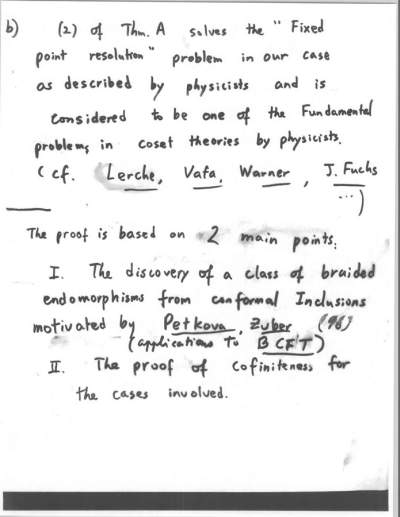 b) (2) of Thm. A solves the "Fixed
point resolution" problem in our case
as described by physicists and is
considered to be one of the Fundamental
problems in coset theories by physicists.
(cf. Lerche, Vafa, Warner, J. Fuchs
...)
The proof is based on 2 main points:
I. The discovery of a class of braided
endomorphisms from conformal Inclusions
motivated by Petkova, Zuber (96)
(applications to BCFT)
II. The proof of cofiniteness for
the cases involved.